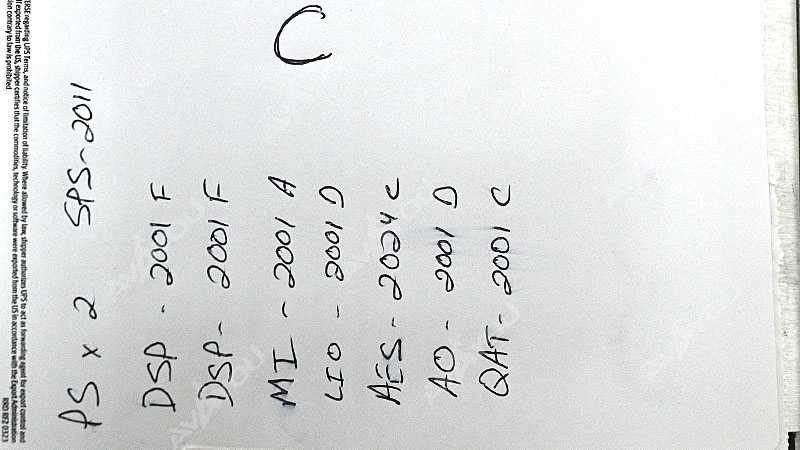 C
PS x 2 SPS-2011
DSP - 2001 F
DSP - 2001 F
MI - 2001 A
LIO - 2001 D
AES - 2024 C
AO - 2001 D
QAT - 2001 C
ERSE regarding UPS Terms, and notice of limitation of liability. Where allowed by law, shipper authorizes UPS to act as forwarding agent for export control and
If exported from the US, shipper certifies that the commodities, technology or software were exported from the US in accordance with the Export Administration
ion contrary to law is prohibited.
RRD RF2 0323